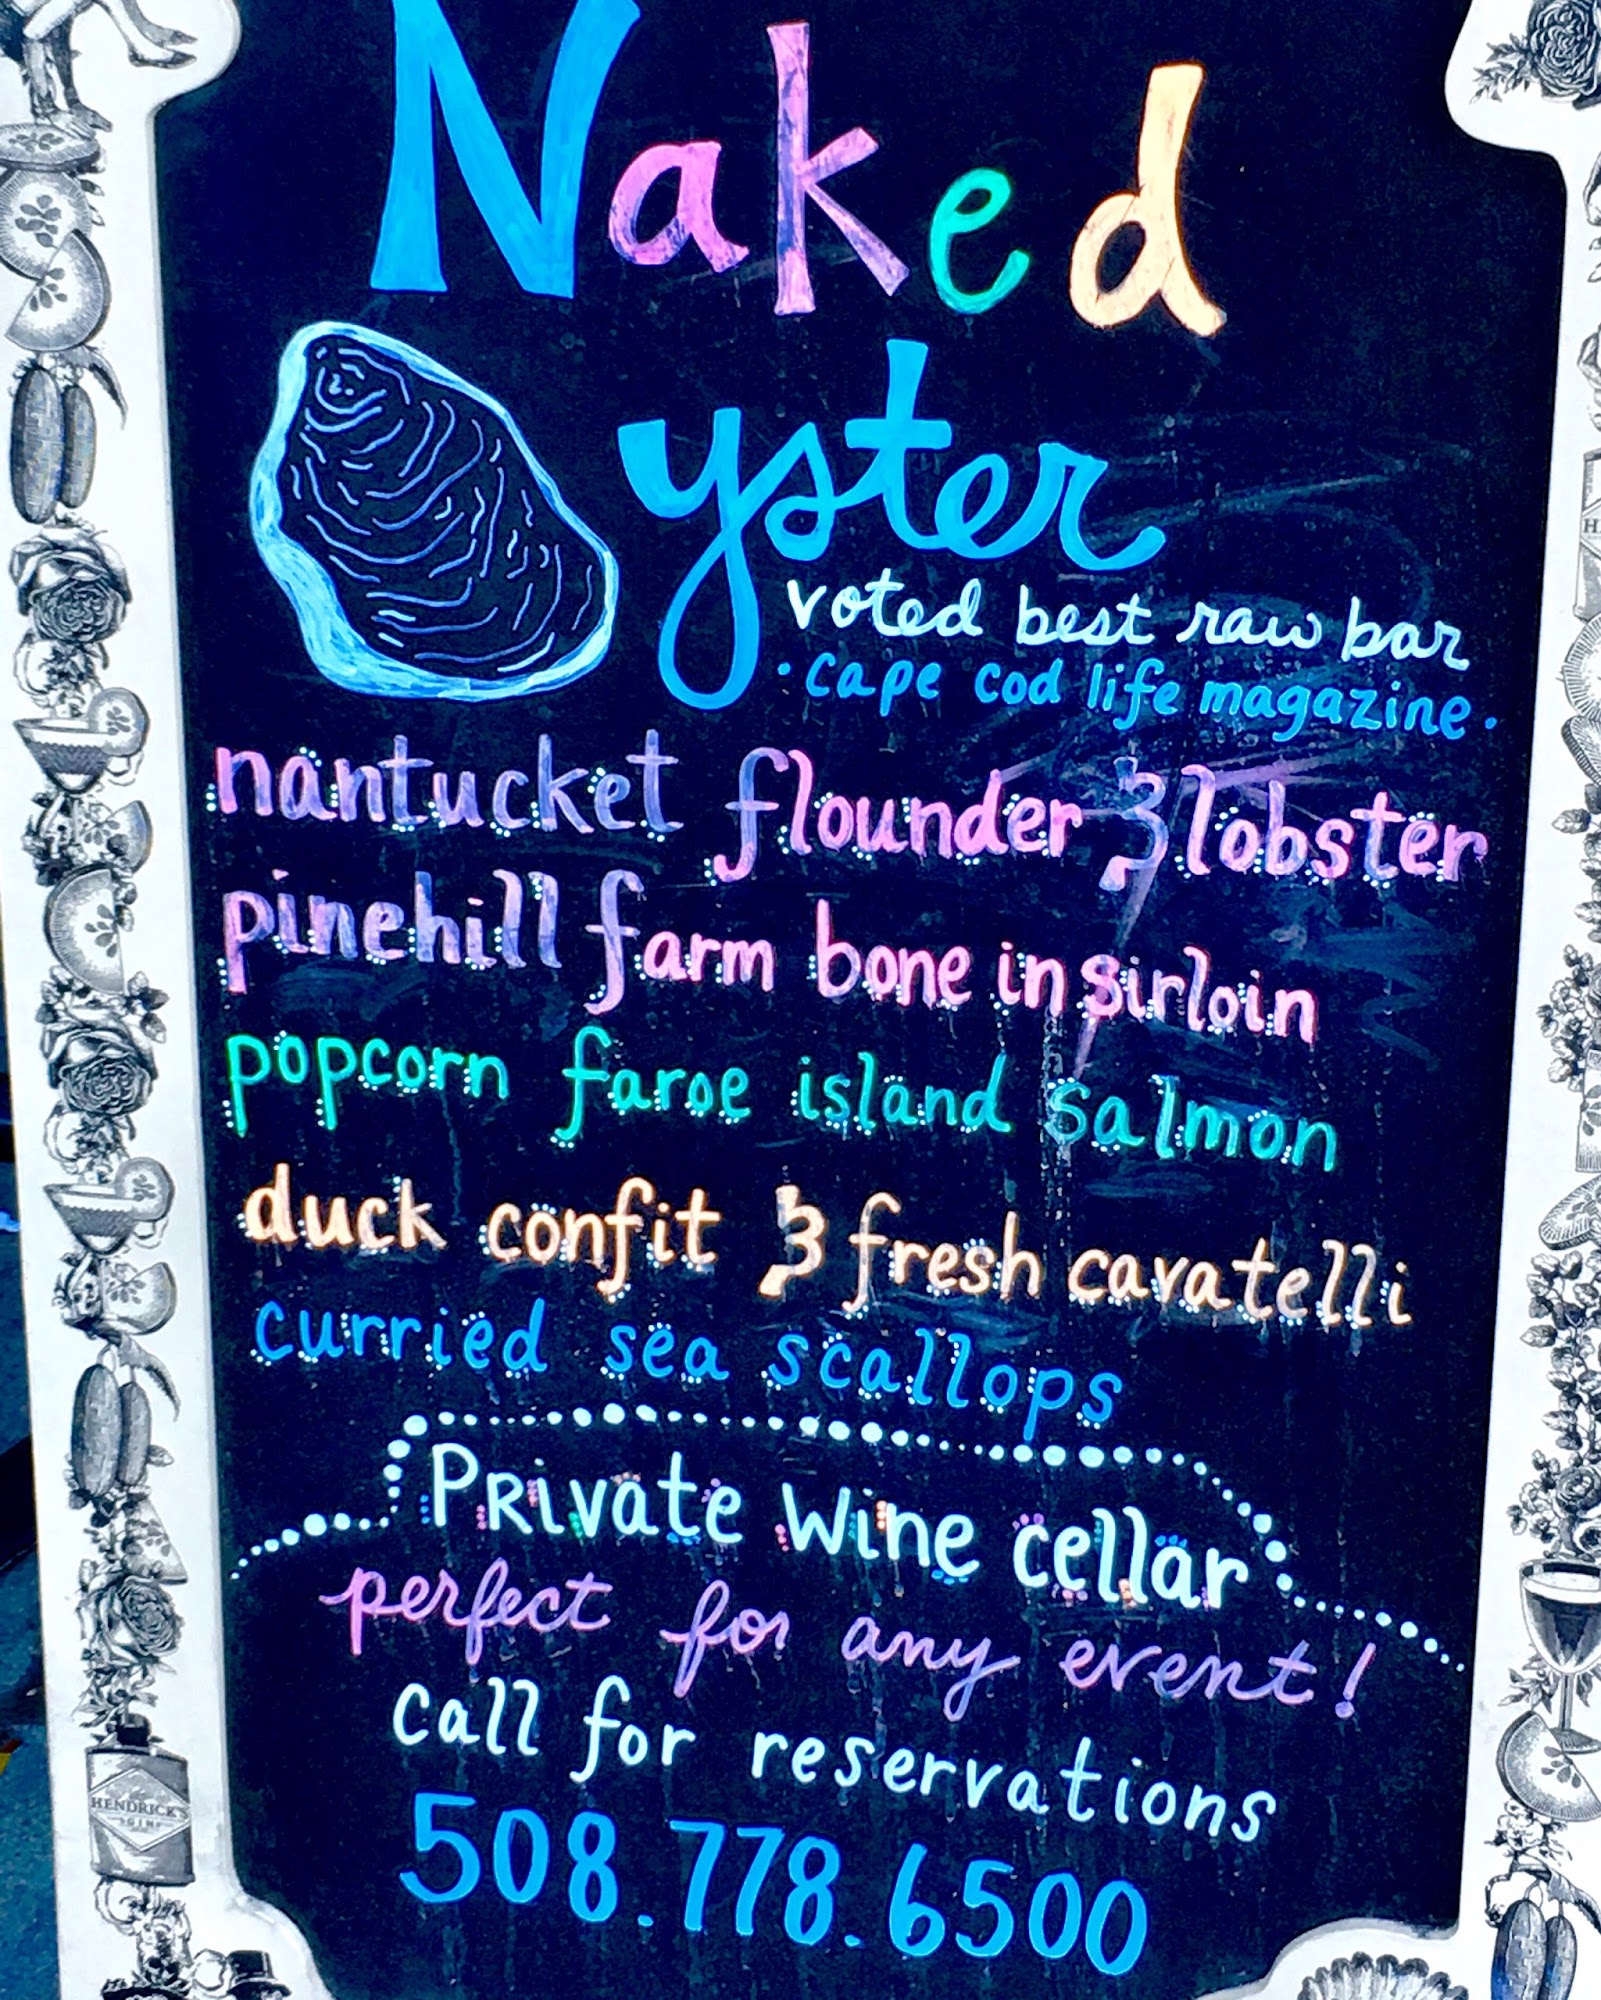 Naked
yster
voted best raw bar
· cape cod life magazine ·
nantucket flounder & lobster
pinehill farm bone in sirloin
popcorn faroe island salmon
duck confit & fresh cavatelli
curried sea scallops
Private Wine cellar
perfect for any event!
call for reservations
508.778.6500
HENDRICK'S
GIN